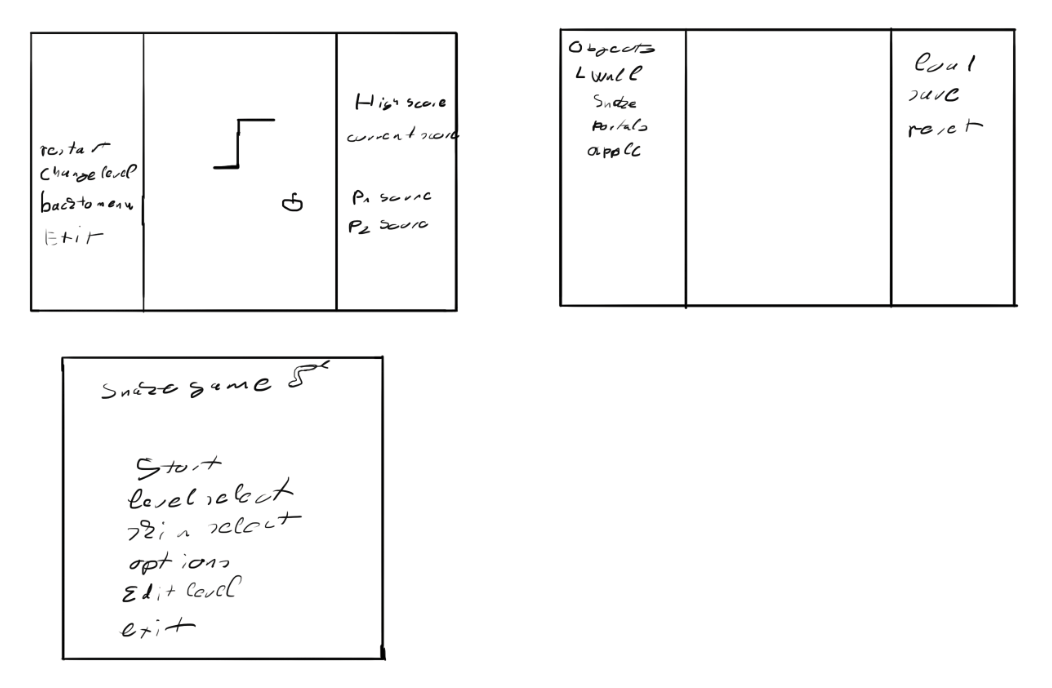 restart
Change level
back to menu
Exit
High score
current score
P1 source
P2 source
Objects
L Wall
Snake
Portals
apple
load
save
reset
Snake game
Start
level select
skin select
options
Edit level
exit